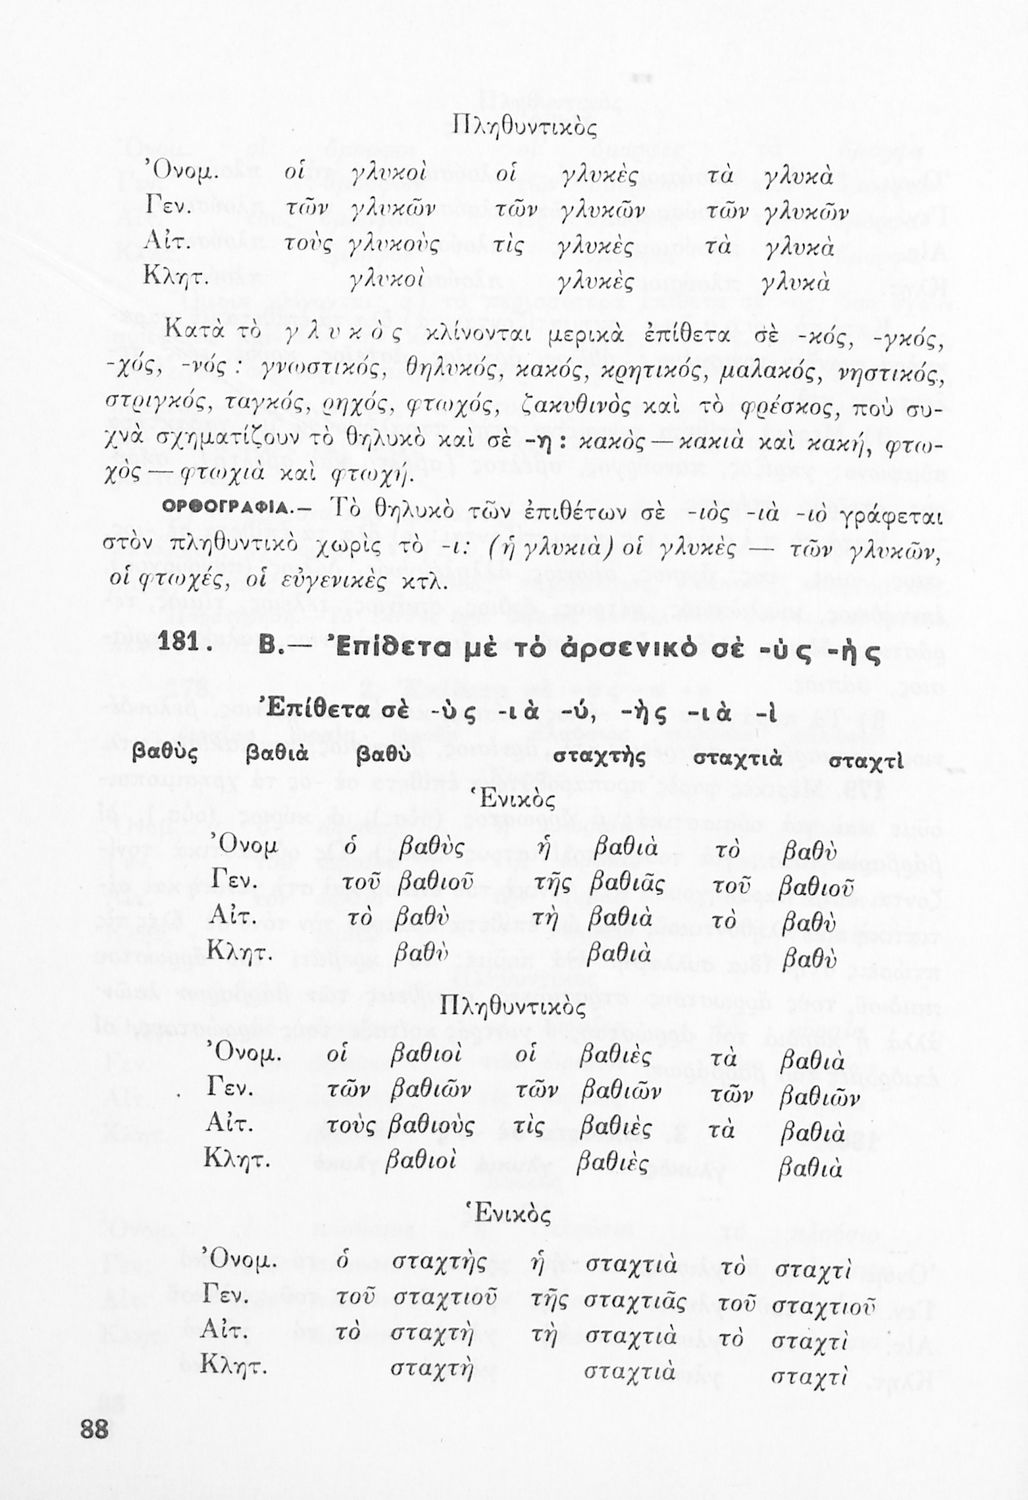 Πληθυντικὸς
Ὀνομ. οἱ γλυκοὶ οἱ γλυκὲς τὰ γλυκὰ
Γεν. τῶν γλυκῶν τῶν γλυκῶν τῶν γλυκῶν
Αἰτ. τοὺς γλυκοὺς τὶς γλυκὲς τὰ γλυκὰ
Κλητ. γλυκοὶ γλυκὲς γλυκὰ
Κατὰ τὸ γλυκὸς κλίνονται μερικὰ ἐπίθετα σὲ -κός, -γκός,
-χός, -νός : γνωστικός, θηλυκός, κακός, κρητικός, μαλακός, νηστικός,
στριγκός, ταγκός, ρηχός, φτωχός, ζακυθινὸς καὶ τὸ φρέσκος, ποὺ συ-
χνὰ σχηματίζουν τὸ θηλυκὸ καὶ σὲ -η : κακὸς — κακιὰ καὶ κακή, φτω-
χὸς — φτωχιὰ καὶ φτωχή.
ΟΡΘΟΓΡΑΦΙΑ.— Τὸ θηλυκὸ τῶν ἐπιθέτων σὲ -ιὸς -ιὰ -ιὸ γράφεται
στὸν πληθυντικὸ χωρὶς τὸ -ι: (ἡ γλυκιὰ) οἱ γλυκὲς — τῶν γλυκῶν,
οἱ φτωχές, οἱ εὐγενικὲς κτλ.
181. Β.— Ἐπίθετα μὲ τὸ ἀρσενικὸ σὲ -ὺς -ὴς
Ἐπίθετα σὲ -ὺς -ιὰ -ύ, -ὴς -ιὰ -ὶ
βαθὺς βαθιὰ βαθὺ σταχτὴς σταχτιὰ σταχτὶ
Ἑνικὸς
Ὀνομ ὁ βαθὺς ἡ βαθιὰ τὸ βαθὺ
Γεν. τοῦ βαθιοῦ τῆς βαθιᾶς τοῦ βαθιοῦ
Αἰτ. τὸ βαθὺ τὴ βαθιὰ τὸ βαθὺ
Κλητ. βαθὺ βαθιὰ βαθὺ
Πληθυντικὸς
Ὀνομ. οἱ βαθιοὶ οἱ βαθιὲς τὰ βαθιὰ
Γεν. τῶν βαθιῶν τῶν βαθιῶν τῶν βαθιῶν
Αἰτ. τοὺς βαθιοὺς τὶς βαθιὲς τὰ βαθιὰ
Κλητ. βαθιοὶ βαθιὲς βαθιὰ
Ἑνικὸς
Ὀνομ. ὁ σταχτὴς ἡ σταχτιὰ τὸ σταχτὶ
Γεν. τοῦ σταχτιοῦ τῆς σταχτιᾶς τοῦ σταχτιοῦ
Αἰτ. τὸ σταχτὴ τὴ σταχτιὰ τὸ σταχτὶ
Κλητ. σταχτὴ σταχτιὰ σταχτὶ
88